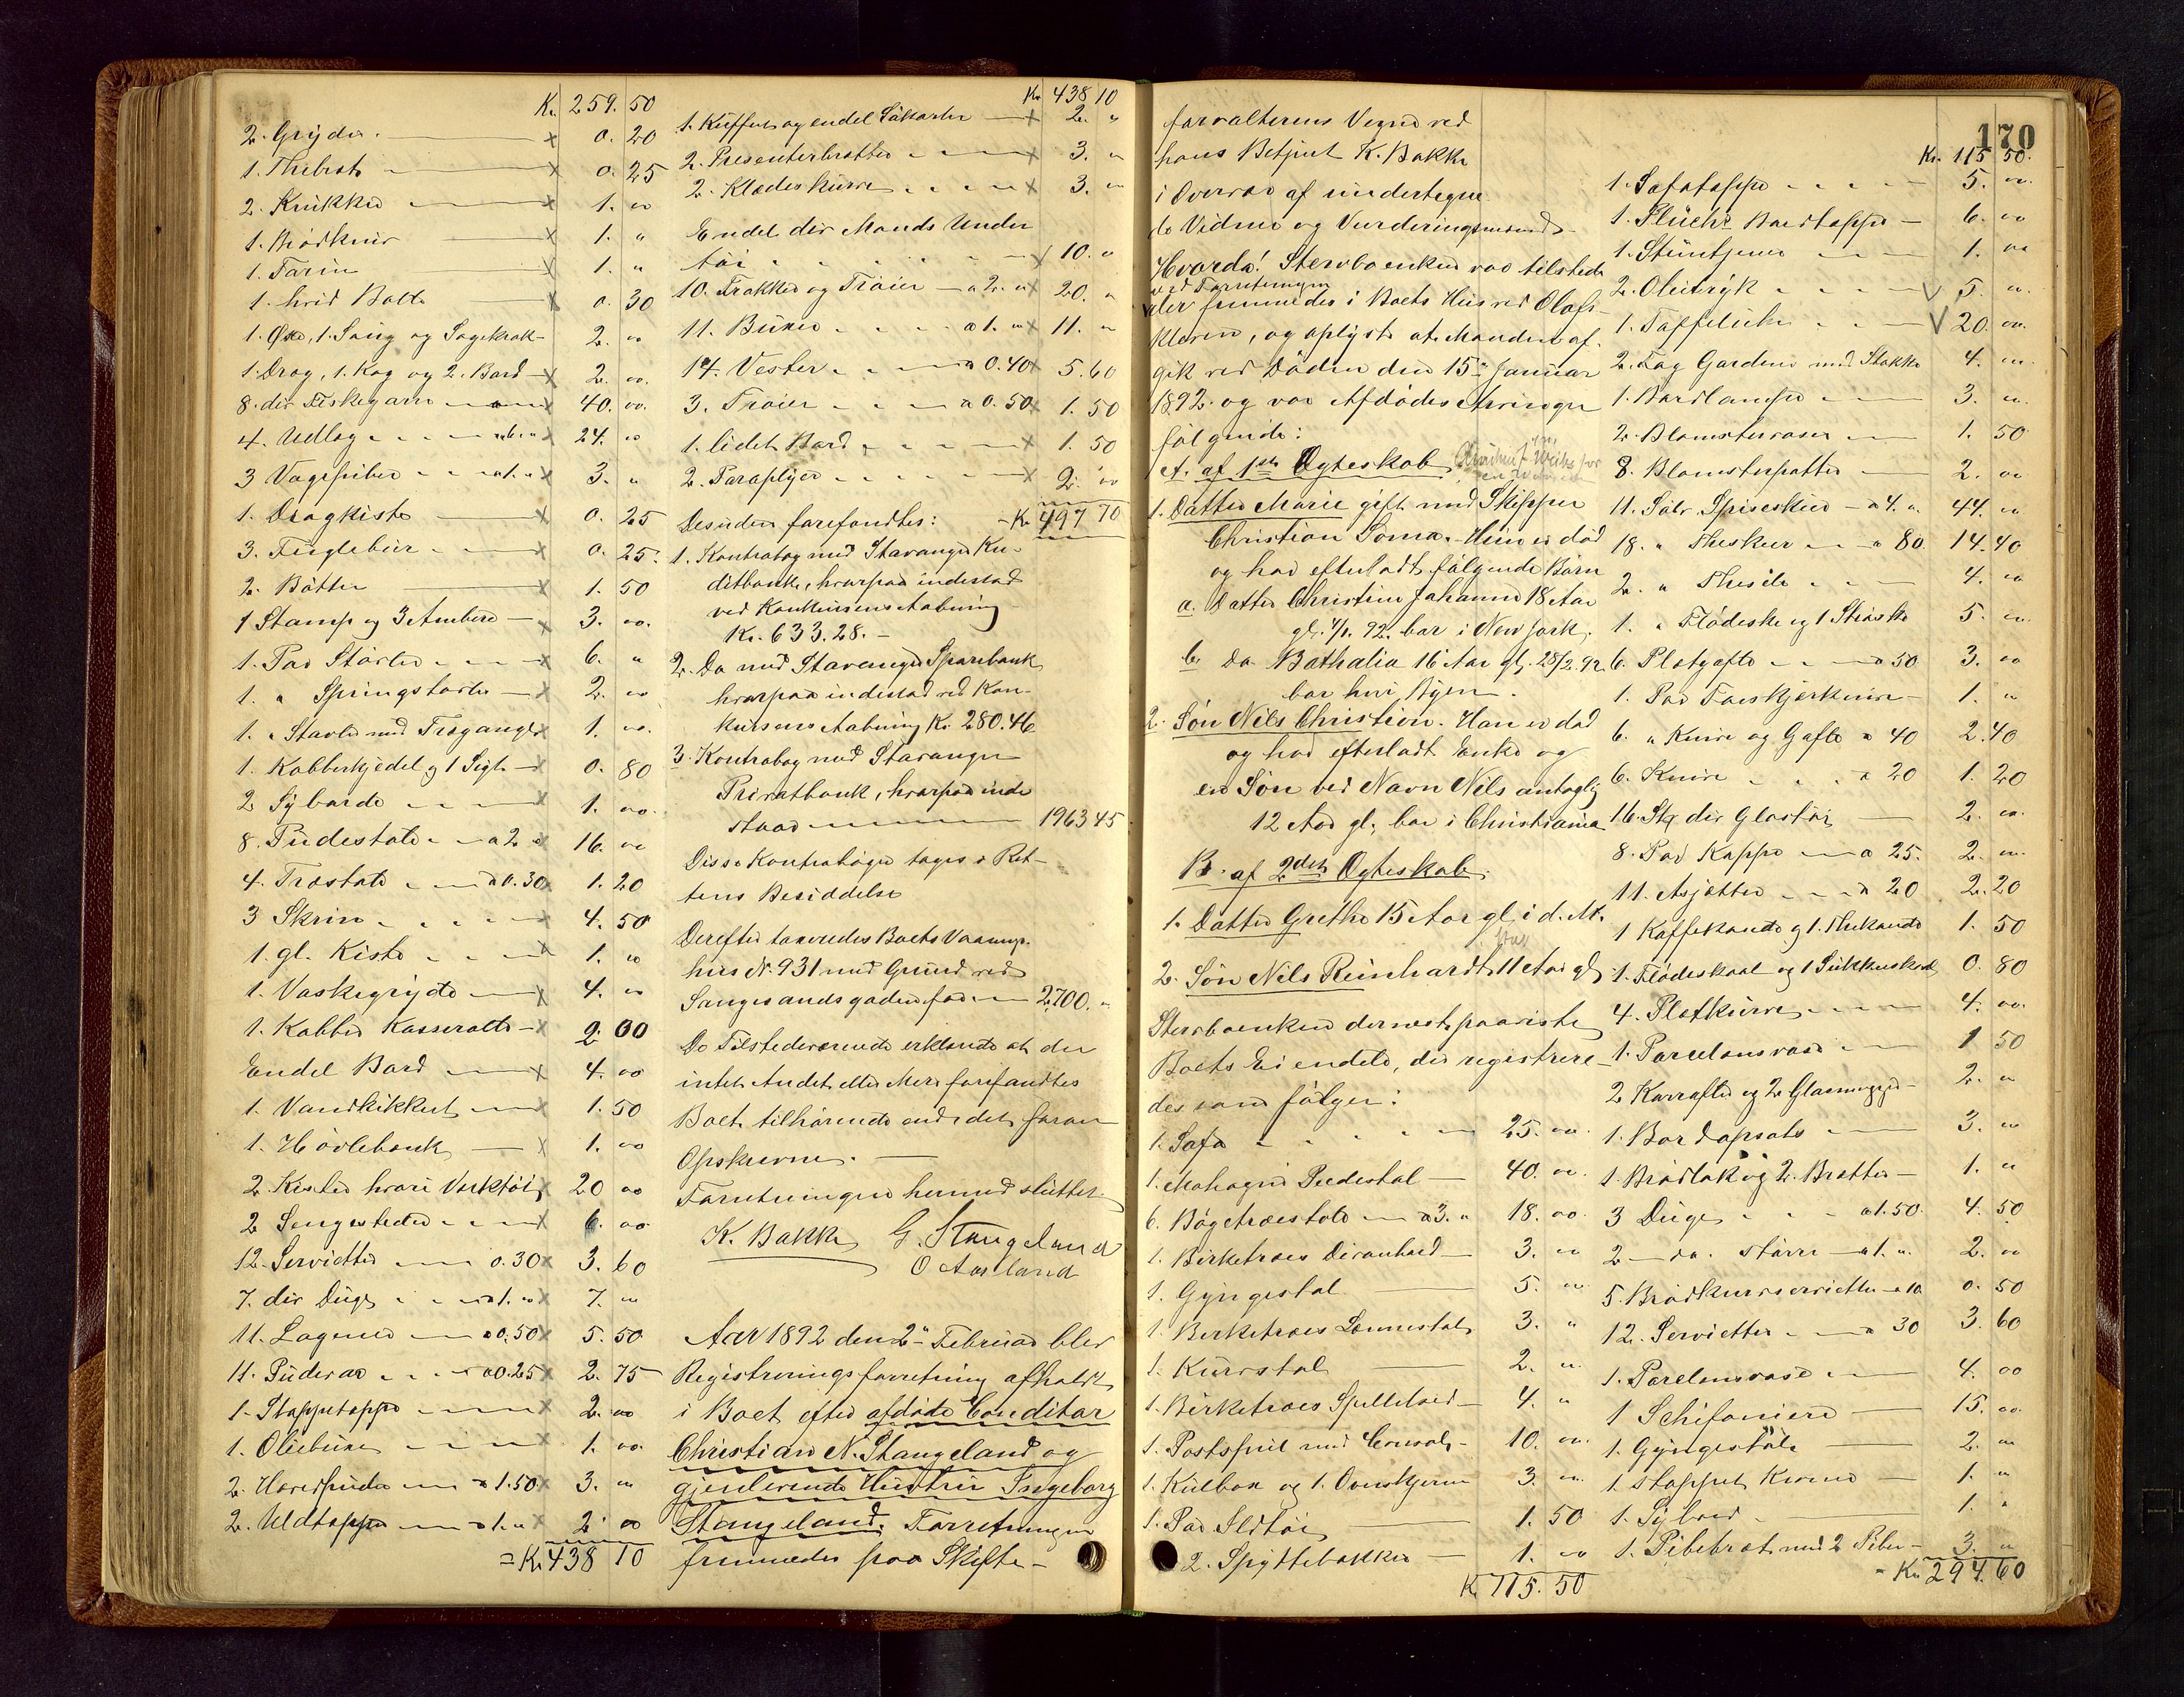 Kr. 259. 50
2. Gryder x 0. 20
1. Thebret x 0. 25
2. Krukker x 1. oo
1. Brødkniv x 1. "
1. Tarin x 1. "
1. hvid Bolle x 0. 30
1. Øxe, 1. Saug og Sagekrak 2. oo
1. Drag, 1. Kag og 2. Bord x 2. oo.
8. div Fiskegarn x 40. oo.
4. Udlog a 6. " x 24. oo
3 Vagepiber a 1. " x 3. "
1. Dragkiste x 0. 25
3. Fuglebur x 0. 25.
2. Bøtter x 1. 50
1 Stamp og 3 Ambere x 3. oo.
1. Par Støvler x 6. "
1. " Springstøvler x 2. oo
1. " Støvler med Trægange x 1. oo.
1. Kobberkjedel og 1 Sigt x 0. 80
2 Syborde x 1. oo.
8. Pudestole a 2 x 16. oo
4. Træstole a 0. 30 x 1. 20
3 Skrin x 4. 50
1. gl. Kiste x 1. oo
1. Vaskegryde x 4. oo
1. Kobber Kasserolle x 2. 00
Endel Bord x 4. oo
1. Vandkikkert x 1. 50
1. Høvlebenk x 1. oo
2. Kister hvori Verktøi x 20 oo
2 Sengesteder x 6. oo
12. Servietter 0. 30 x 3. 60
7. div Duge a 1. " x 7. "
11. Lagener a 0. 50 x 5. 50
11. Pudevar a 0. 25 x 2. 75
1. Stoppetæppe x 2. oo
1. Oliebuxe x 1. oo.
2. Hovedpuder a 1. 50 x 3. "
2. Uldtæpper a 1. " x 2. oo
= Kr. 438 10
Kr. 438 10
1. Kuffert og endel Søkarter x 2. "
2. Presenterbretter x 3. "
2. Klædeskurve x 3. "
Endel div Mands Under
tøi x 10. "
10. Frakker og Trøier a 2. " x 20. "
11. Buxer a 1. " x 11. "
14. Vester a 0. 40 x 5. 60
3. Trøier a 0. 50 x 1. 50
1. lidet Bord x 1. 50
2. Paraplyer x 2. oo
Desuden forefandtes: Kr. 497 70
1. Kontrabog med Stavanger Kre-
ditbank, hvorpaa indestod
ved Konkursens Aabning
Kr. 633. 28. -
2. Do med Stavanger Sparebank
hvorpaa indestod ved Kon-
kursens Aabning Kr. 280. 46
3. Kontrabog med Stavanger
Privatbank, hvorpaa inde
staar 1963 45
Disse Kontrabøger tages i Ret-
tens Besiddelse
Derefter taxeredes Boets Vaanings-
hus No. 931 med Grund ved
Sangesandsgaden for 2,700. "
De Tilstedeværende erklærede at der
intet Andet eller Mere forefandtes
Boet tilhørende end det foran
Opskrevne. -
Forretningen hermed sluttet.
K. Bakke G. Stangeland
O Aarland
Aar 1892 den 2" Februar blev
Registreringsforretning afholdt
i Boet efter afdøde Conditor
Christian N. Stangeland og
gjenlevende Hustru Ingeborg
Stangeland. Forretningen
fremmedes paa Skifte-
forvalterens Vegne ved
hans Betjent K. Bakke
i Overvær af undertegne
de Vidner og Vurderingsmænd
Hvorda! Stervboenken var tilstede
ved Forretningen
der fremmedes i Boets Hus ved Olafs-
kleven, og oplyste at Manden af-
gik ved Døden den 15" Januar
1892 og var Afdødes Arvinger
følgende:
A. af 1ste Ægteskab
1. Datter Marie gift med Skipper
Christian Soma. Hun er død
og har efterladt følgende Børn
a. Datter Christine Johanne 18 Aar
gl. 4/1. 92. bor i New York.
b. Do. Nathalia 16 Aar gl. 28/2. 92
bor her i Byen.
2. Søn Nils Christian. Han er død
og har efterladt Enke og
en Søn ved Navn Nils antagelig
12 Aar gl; bor i Christiania
B. af 2det Ægteskab.
1. Datter Grethe 15 Aar gl. i d. M.
2. Søn Nils Reinhardt 11 Aar gl
Stervboenken dernest paaviste
Boets Eiendele, der registrere-
des som følger:
1. Sofa 25. oo.
1. Mahogni Piedestal 40. oo.
6. Bøgetræestole a 3. " 18. oo.
1. Birketræes Divanbord 3. oo
1. Gyngestol 5. oo
1. Birketræes Lænestol 3. "
1. Kurvstol 2. "
1. Birketræes Spillebord 4. "
1. Postspeil med Consol 10. oo.
1. Kulbox og 1. Ovnskjerm 3. oo.
1. Par Ildtøi 1. 50
2. Spyttebakker 1. oo
Kr. 115. 50
170
Kr. 115 50.
1. Sofatæppe 5. oo.
1. Pluche Bordtæppe 6. oo
1. Stumtjener 1. oo
2. Olietryk V 5. "
1. Taffeluhr V 20. oo.
2. Fag Gardiner med Stokke 4. oo.
1. Bordlampe 3. "
2. Blomstervaser 1. 50
8. Blomsterpotter 2. oo
11. Sølv Spiseskeer a 4. " 44. "
18. " Theskeer a 80 14. 40
2. " Thesile 4. oo
1. " Flødeske og 1 Strøske 5. oo.
6. Pletgafle a 50 3. oo
1. Par Forskjærkniv 1. "
6. " Knive og Gafle a 40 2. 40
6. Knive a 20 1. 20
16. Stk div Glastøi 2. oo.
8. Par Kopper a 25. 2. oo.
11. Asjetter a 20 2. 20
1 Kaffekande og 1. Thekande 1. 50
1. Flødeskaal og 1 Sukkerskaal 0. 80
4. Pletkurve 4. oo.
1. Porcelansvase 1 50
2 Karafler og 2 Glasmugger 2. "
1. Bordopsats 3. "
1. Brødbak og 2. Bretter 1. "
3 Duge a 1. 50. 4. 50
2 do. større a 1. " 2. oo
5. Brødkurvservietter a 10 0. 50
12. Servietter a 30 3. 60
1. Porcelansvase 4. oo
1 Schifoniere 15. oo.
1. Gyngestol 2. "
1 stoppet Krak 1. "
1. Sybord 1. "
1. Pibebret med 2 Piber 3. "
= Kr. 294. 60